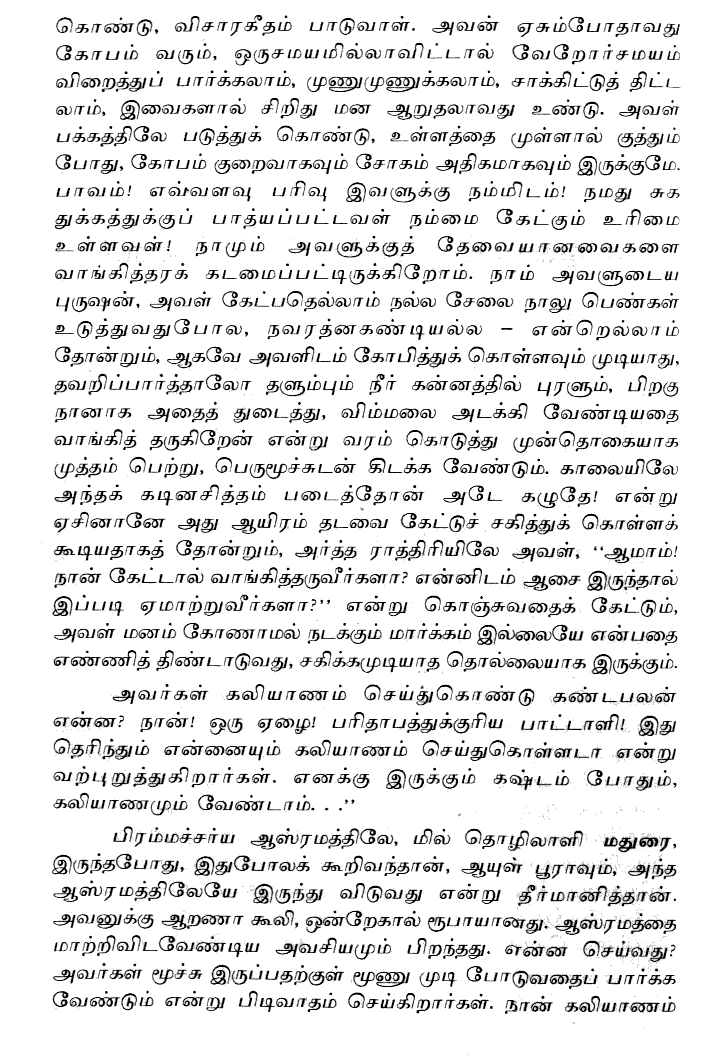 கொண்டு, விசாரகீதம் பாடுவாள். அவன் ஏசும்போதாவது
கோபம் வரும், ஒருசமயமில்லாவிட்டால் வேறோர்சமயம்
விறைத்துப் பார்க்கலாம், முணுமுணுக்கலாம், சாக்கிட்டுத் திட்ட
லாம், இவைகளால் சிறிது மன ஆறுதலாவது உண்டு. அவள்
பக்கத்திலே படுத்துக் கொண்டு, உள்ளத்தை முள்ளால் குத்தும்
போது, கோபம் குறைவாகவும் சோகம் அதிகமாகவும் இருக்குமே.
பாவம்! எவ்வளவு பரிவு இவளுக்கு நம்மிடம்! நமது சுக
துக்கத்துக்குப் பாத்யப்பட்டவள் நம்மை கேட்கும் உரிமை
உள்ளவள்! நாமும் அவளுக்குத் தேவையானவைகளை
வாங்கித்தரக் கடமைப்பட்டிருக்கிறோம். நாம் அவளுடைய
புருஷன், அவள் கேட்பதெல்லாம் நல்ல சேலை நாலு பெண்கள்
உடுத்துவதுபோல, நவரத்னகண்டியல்ல – என்றெல்லாம்
தோன்றும், ஆகவே அவளிடம் கோபித்துக் கொள்ளவும் முடியாது,
தவறிப்பார்த்தாலோ தளும்பும் நீர் கன்னத்தில் புரளும், பிறகு
நானாக அதைத் துடைத்து, விம்மலை அடக்கி வேண்டியதை
வாங்கித் தருகிறேன் என்று வரம் கொடுத்து முன்தொகையாக
முத்தம் பெற்று, பெருமூச்சுடன் கிடக்க வேண்டும். காலையிலே
அந்தக் கடினசித்தம் படைத்தோன் அடே கழுதே! என்று
ஏசினானே அது ஆயிரம் தடவை கேட்டுச் சகித்துக் கொள்ளக்
கூடியதாகத் தோன்றும், அர்த்த ராத்திரியிலே அவள், “ஆமாம்!
நான் கேட்டால் வாங்கித்தருவீர்களா? என்னிடம் ஆசை இருந்தால்
இப்படி ஏமாற்றுவீர்களா?” என்று கொஞ்சுவதைக் கேட்டும்,
அவள் மனம் கோணாமல் நடக்கும் மார்க்கம் இல்லையே என்பதை
எண்ணித் திண்டாடுவது, சகிக்கமுடியாத தொல்லையாக இருக்கும்.
அவர்கள் கலியாணம் செய்துகொண்டு கண்டபலன்
என்ன? நான்! ஒரு ஏழை! பரிதாபத்துக்குரிய பாட்டாளி! இது
தெரிந்தும் என்னையும் கலியாணம் செய்துகொள்ளடா என்று
வற்புறுத்துகிறார்கள். எனக்கு இருக்கும் கஷ்டம் போதும்,
கலியாணமும் வேண்டாம். . .”
பிரம்மச்சர்ய ஆஸ்ரமத்திலே, மில் தொழிலாளி மதுரை,
இருந்தபோது, இதுபோலக் கூறிவந்தான், ஆயுள் பூராவும், அந்த
ஆஸ்ரமத்திலேயே இருந்து விடுவது என்று தீர்மானித்தான்.
அவனுக்கு ஆறணா கூலி, ஒன்றேகால் ரூபாயானது. ஆஸ்ரமத்தை
மாற்றிவிடவேண்டிய அவசியமும் பிறந்தது. என்ன செய்வது?
அவர்கள் மூச்சு இருப்பதற்குள் மூணு முடி போடுவதைப் பார்க்க
வேண்டும் என்று பிடிவாதம் செய்கிறார்கள். நான் கலியாணம்